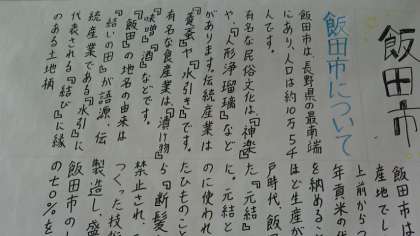 飯田市
飯田市について
飯田市は、長野県の最南端
にあり、人口は約10万5千
人です。
有名な民俗文化は、『神楽』
や、『人形浄瑠璃』など
があります。伝統産業は
『養蚕』や『水引き』です。
有名な食産業は、『漬け物』
『味噌』『酒』などです。
『飯田』の地名の由来は
『結いの田』が語源、伝
統産業である『水引』に
代表される『結び』に縁
のある土地柄
飯田市は
産地でし
上前から
年貢米の代
を納めるこ
ほど生産が
戸時代、飯田
た『元結
に。元結と
のに使われ
たひものこと
ら『断髪
禁止され、
つくった技
製造し、盛
飯田市のし
の70%を